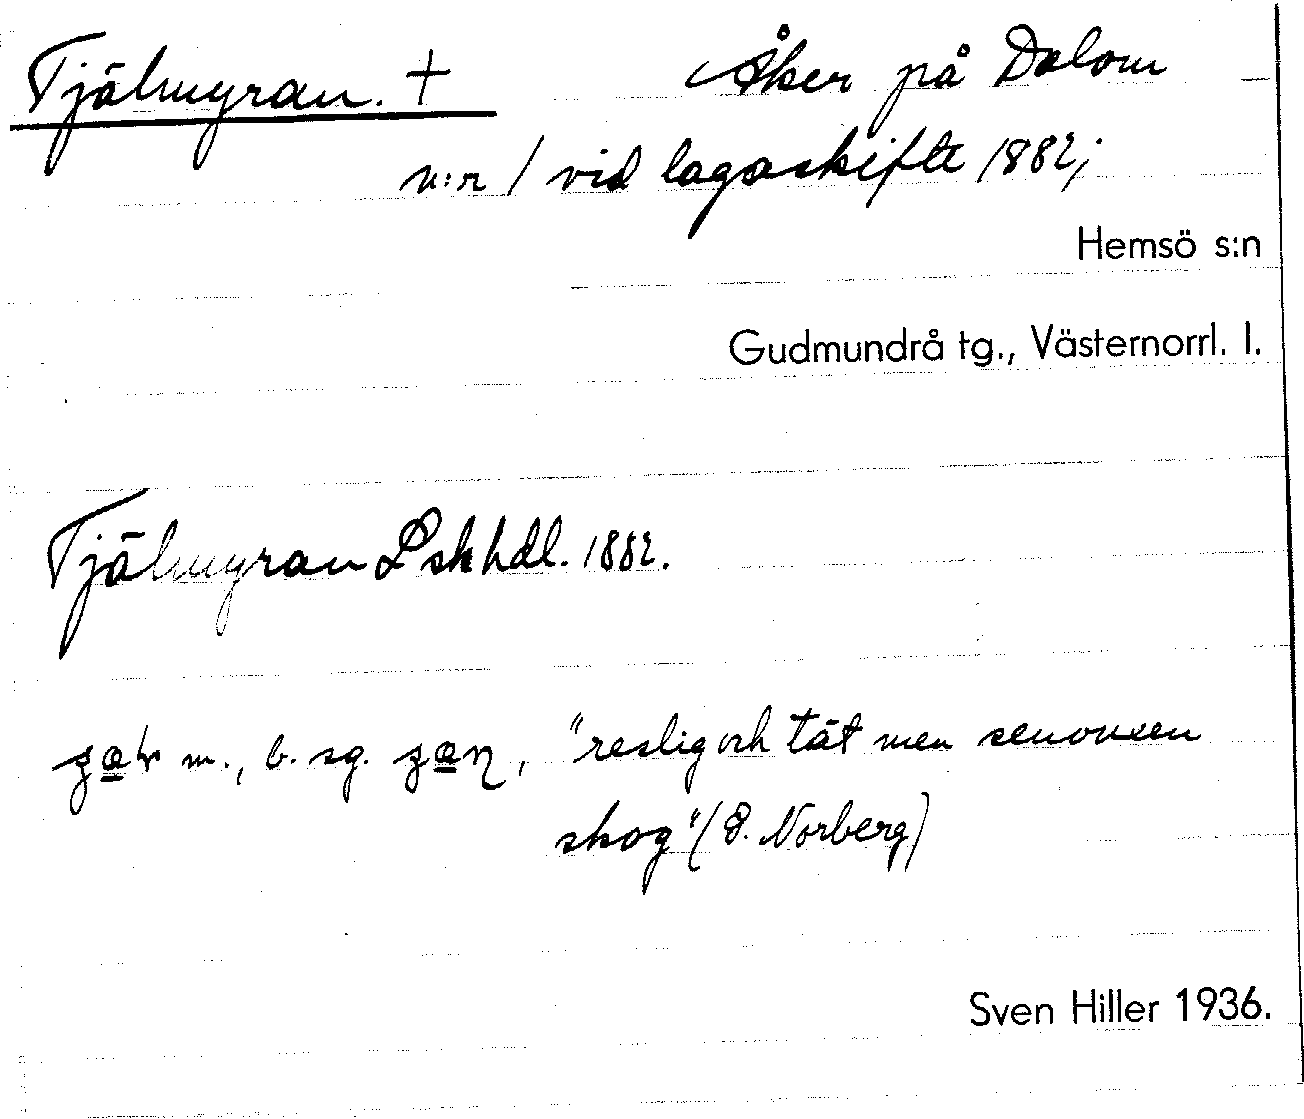 Tjälmyran. + Åker på Dalom
n:r 1 vid lagaskifte 1882;
Hemsö s:n
Gudmundrå tg., Västernorrl. l.
Tjälmyran Lskhdl. 1882.
m., b. sg. "reslig och tät men senvuxen
skog" (E. Norberg)
Sven Hiller 1936.